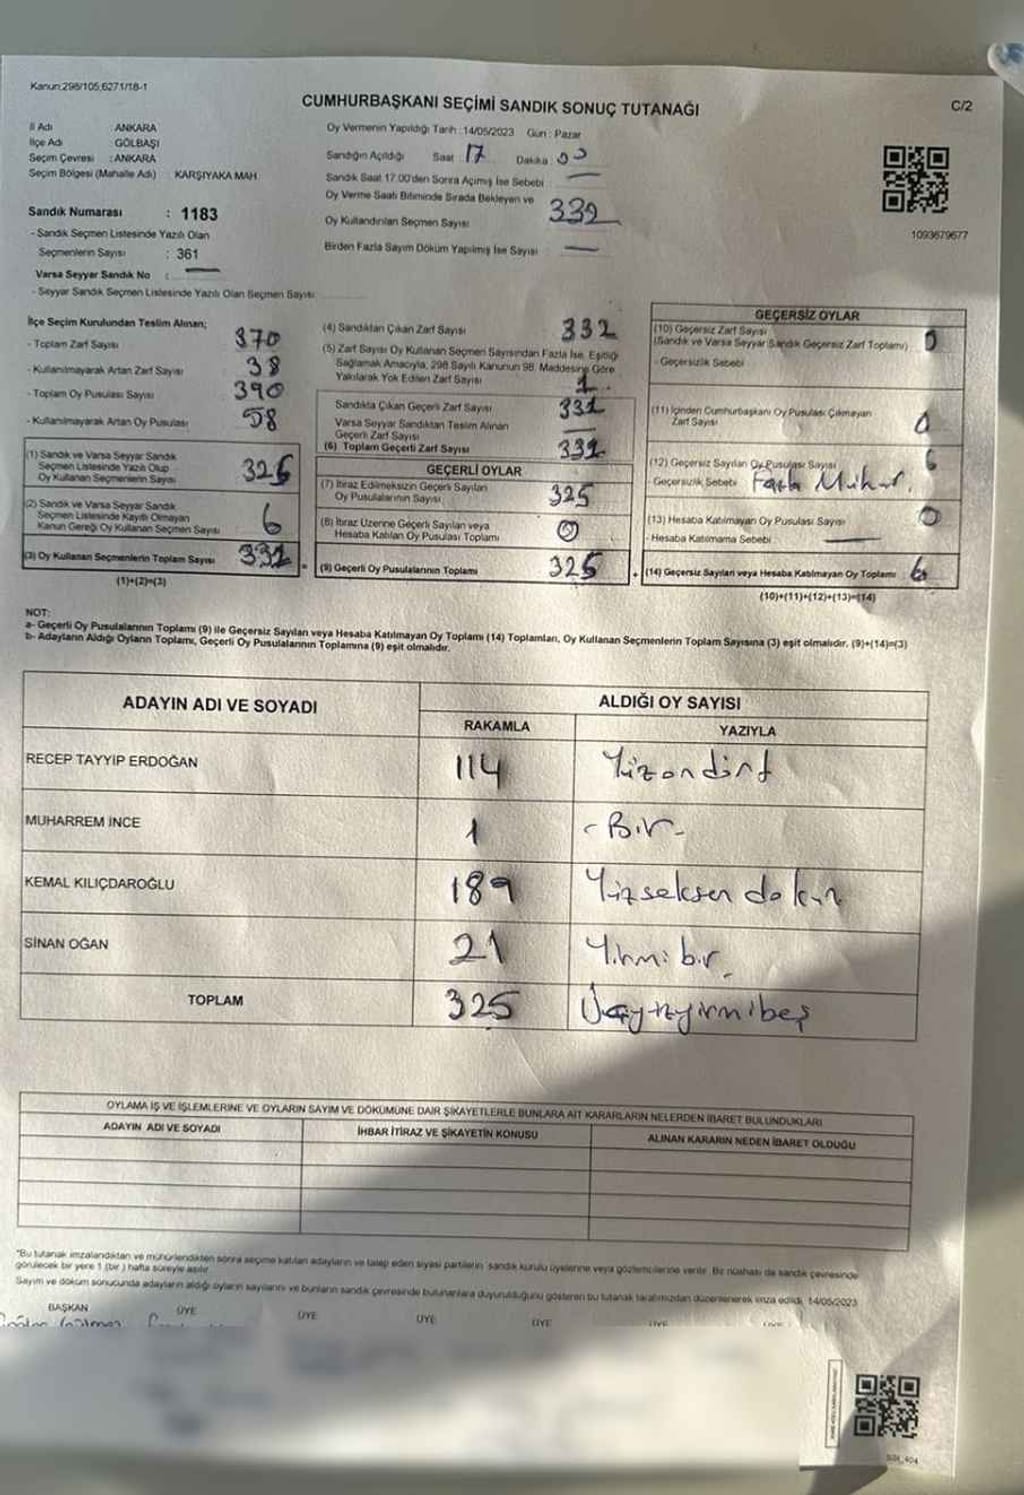 Kanun:298/105;6271/18-1
CUMHURBAŞKANI SEÇİMİ SANDIK SONUÇ TUTANAĞI
C/2
İl Adı : ANKARA
İlçe Adı : GÖLBAŞI
Seçim Çevresi : ANKARA
Seçim Bölgesi (Mahalle Adı) KARŞIYAKA MAH.
Sandık Numarası : 1183
- Sandık Seçmen Listesinde Yazılı Olan
Seçmenlerin Sayısı : 361
Varsa Seyyar Sandık No : —
- Seyyar Sandık Seçmen Listesinde Yazılı Olan Seçmen Sayısı:
Oy Vermenin Yapıldığı Tarih : 14/05/2023 Gün : Pazar
Sandığın Açıldığı Saat : 17 Dakika : 00
Sandık Saat 17.00'den Sonra Açılmış İse Sebebi : —
Oy Verme Saati Bitiminde Sırada Bekleyen ve
Oy Kullandırılan Seçmen Sayısı : 332
Birden Fazla Sayım Döküm Yapılmış İse Sayısı : —
1093679677
İlçe Seçim Kurulundan Teslim Alınan;
- Toplam Zarf Sayısı : 370
- Kullanılmayarak Artan Zarf Sayısı : 38
- Toplam Oy Pusulası Sayısı : 390
- Kullanılmayarak Artan Oy Pusulası : 58
(1) Sandık ve Varsa Seyyar Sandık
Seçmen Listesinde Yazılı Olup
Oy Kullanan Seçmenlerin Sayısı 326
(2) Sandık ve Varsa Seyyar Sandık
Seçmen Listesinde Kayıtlı Olmayan
Kanun Gereği Oy Kullanan Seçmen Sayısı 6
(3) Oy Kullanan Seçmenlerin Toplam Sayısı 331
(1)+(2)=(3)
(4) Sandıktan Çıkan Zarf Sayısı 332
(5) Zarf Sayısı Oy Kullanan Seçmen Sayısından Fazla İse, Eşitliği
Sağlamak Amacıyla, 298 Sayılı Kanunun 98. Maddesine Göre
Yakılarak Yok Edilen Zarf Sayısı 1
Sandıkta Çıkan Geçerli Zarf Sayısı 331
Varsa Seyyar Sandıktan Teslim Alınan
Geçerli Zarf Sayısı —
(6) Toplam Geçerli Zarf Sayısı 331
GEÇERLİ OYLAR
(7) İtiraz Edilmeksizin Geçerli Sayılan
Oy Pusulalarının Sayısı 325
(8) İtiraz Üzerine Geçerli Sayılan veya
Hesaba Katılan Oy Pusulası Toplamı 0
(9) Geçerli Oy Pusulalarının Toplamı 325
GEÇERSİZ OYLAR
(10) Geçersiz Zarf Sayısı
(Sandık ve Varsa Seyyar Sandık Geçersiz Zarf Toplamı) 0
- Geçersizlik Sebebi
(11) İçinden Cumhurbaşkanı Oy Pusulası Çıkmayan
Zarf Sayısı 0
(12) Geçersiz Sayılan Oy Pusulası Sayısı 6
Geçersizlik Sebebi : Fazla Mühür.
(13) Hesaba Katılmayan Oy Pusulası Sayısı 0
- Hesaba Katılmama Sebebi : —
(14) Geçersiz Sayılan veya Hesaba Katılmayan Oy Toplamı 6
(10)+(11)+(12)+(13)=(14)
NOT:
a- Geçerli Oy Pusulalarının Toplamı (9) ile Geçersiz Sayılan veya Hesaba Katılmayan Oy Toplamı (14) Toplamları, Oy Kullanan Seçmenlerin Toplam Sayısına (3) eşit olmalıdır. (9)+(14)=(3)
b- Adayların Aldığı Oyların Toplamı, Geçerli Oy Pusulalarının Toplamına (9) eşit olmalıdır.
ADAYIN ADI VE SOYADI
ALDIĞI OY SAYISI
RAKAMLA YAZIYLA
RECEP TAYYIP ERDOĞAN 114 Yüzondört
MUHARREM İNCE 1 - Bir -
KEMAL KILIÇDAROĞLU 189 Yüzseksen dokuz
SİNAN OĞAN 21 Yirmi bir
TOPLAM 325 Üçyüzyirmibeş
OYLAMA İŞ VE İŞLEMLERİNE VE OYLARIN SAYIM VE DÖKÜMÜNE DAİR ŞİKAYETLERLE BUNLARA AİT KARARLARIN NELERDEN İBARET BULUNDUKLARI
ADAYIN ADI VE SOYADI İHBAR İTİRAZ VE ŞİKAYETİN KONUSU ALINAN KARARIN NEDEN İBARET OLDUĞU
"Bu tutanak imzalandıktan ve mühürlendikten sonra seçime katılan adayların ve talep eden siyasi partilerin sandık kurulu üyelerine veya gözlemcilerine verilir. Bir nüshası da sandık çevresinde
görülecek bir yere 1 (bir ) hafta süreyle asılır.
Sayım ve döküm sonucunda adayların aldığı oyların sayılarını ve bunların sandık çevresinde bulunanlara duyurulduğunu gösteren bu tutanak tarafımızdan düzenlenerek imza edildi. 14/05/2023
BAŞKAN ÜYE ÜYE ÜYE ÜYE ÜYE